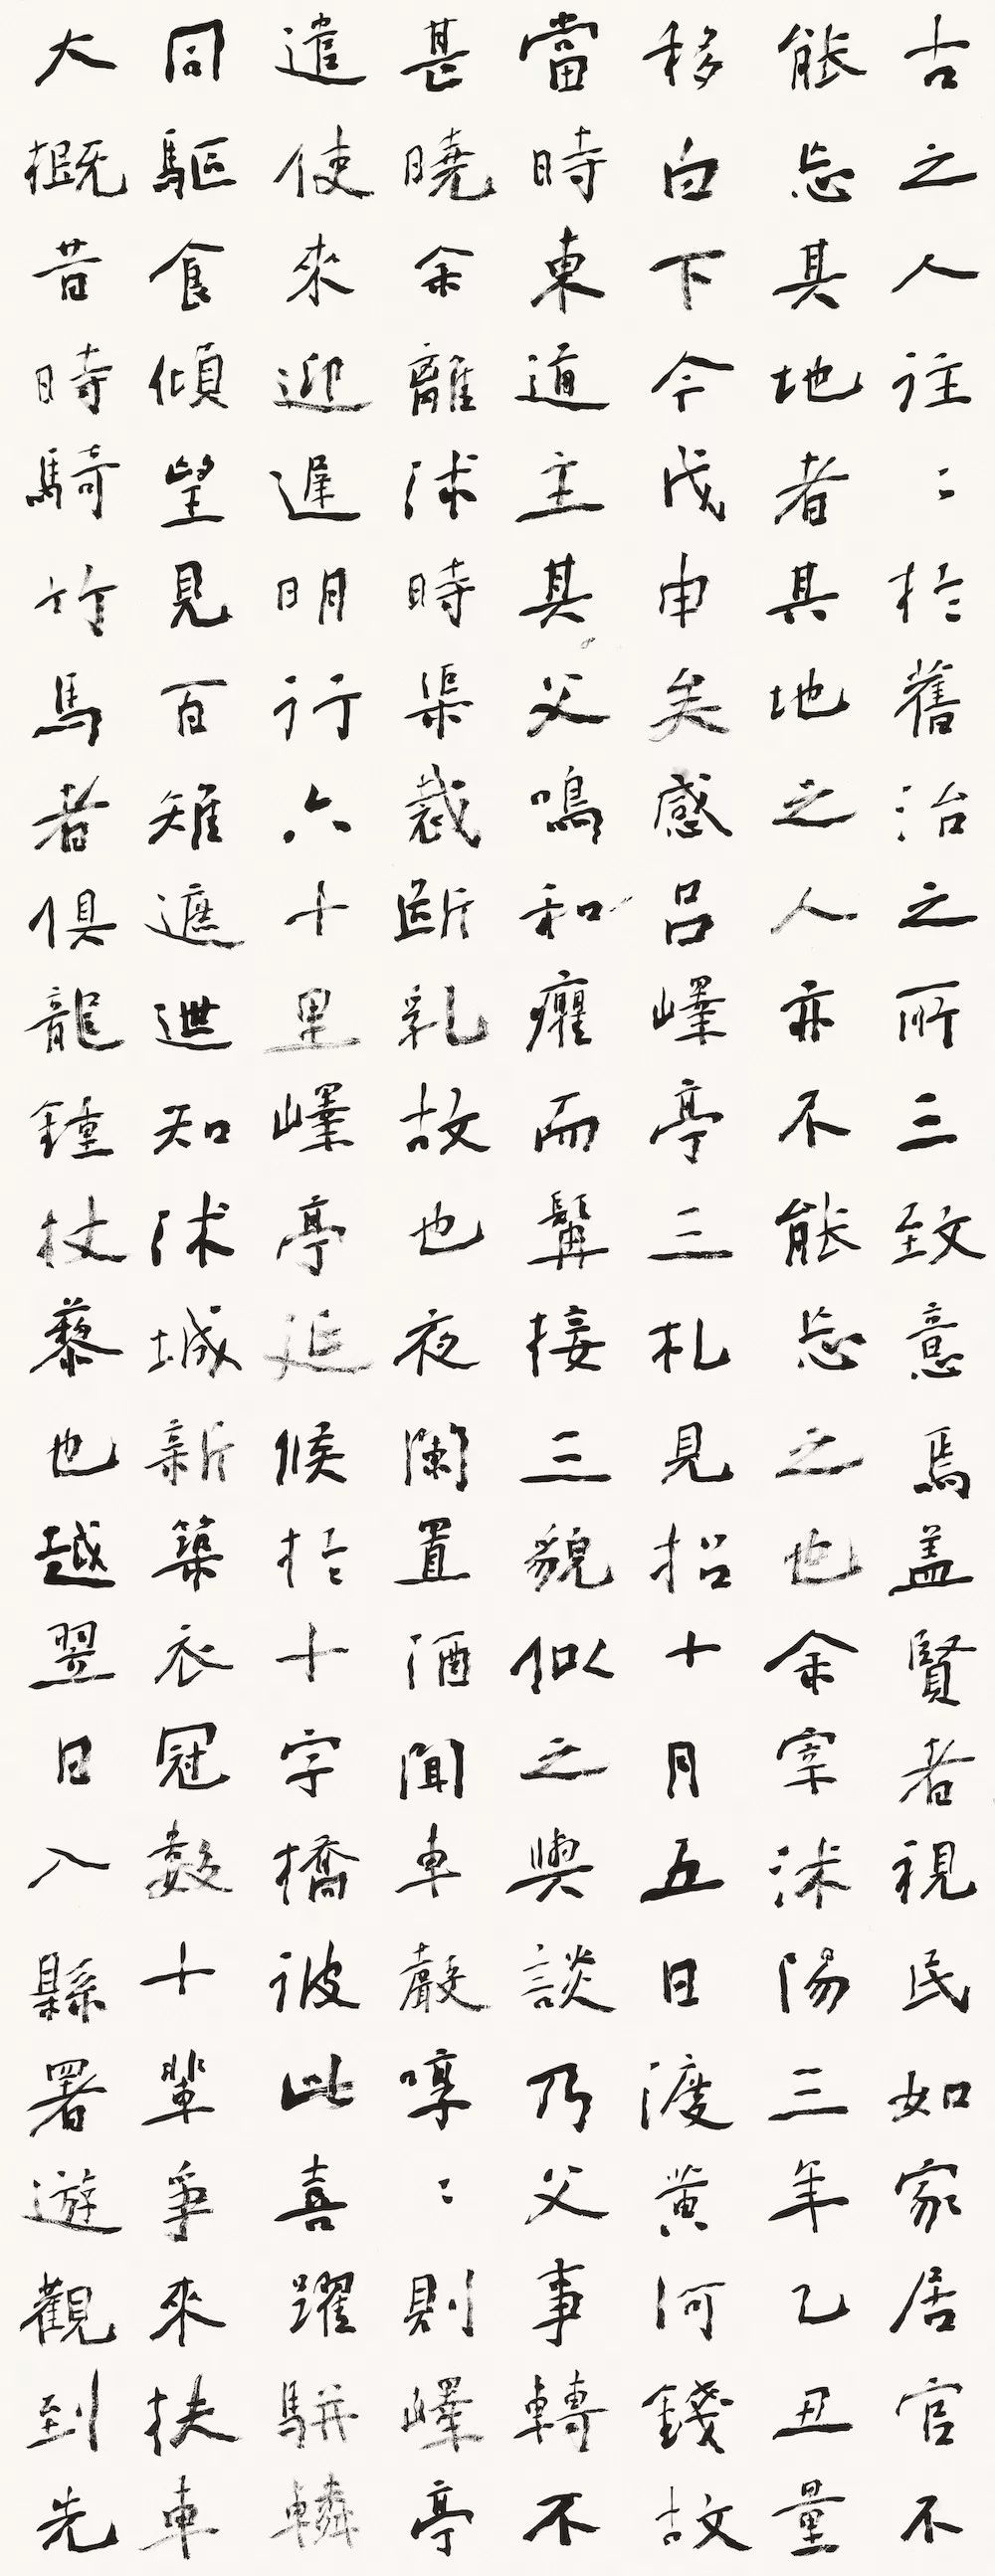 古之人往々於舊治之所三致意焉盖賢者視民如家居官不
能忘其地者其地之人亦不能忘之也余宰沭陽三年乙丑量
移白下今戊申矣感吕嶧亭三札見招十月五日渡黄河錢故
當時東道主其父鳴和癯而髯接三貌似之與談乃父事轉不
甚曉余離沭時渠裁斷乳故也夜闌置酒聞車聲哼々則嶧亭
遣使來迎遲明行六十里嶧亭延候於十字橋彼此喜躍駢轔
同驅食傾望見百雉遮迣知沭城新築衣冠數十輩爭來扶車
大概昔時騎竹馬者俱龍鍾杖藜也越翌日入縣署遊觀到先